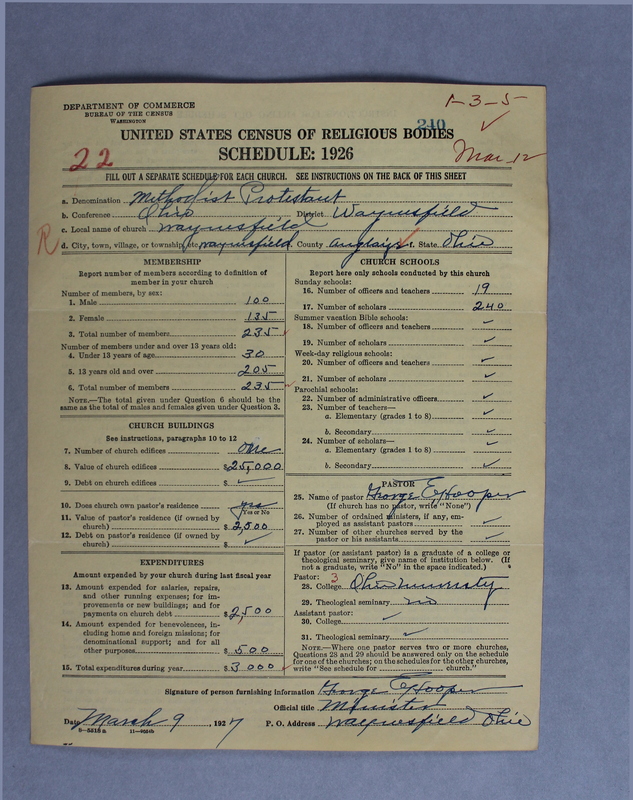 1-3-5
DEPARTMENT OF COMMERCE
BUREAU OF THE CENSUS
WASHINGTON
240
UNITED STATES CENSUS OF RELIGIOUS BODIES
22
SCHEDULE: 1926
Mar 12
FILL OUT A SEPARATE SCHEDULE FOR EACH CHURCH. SEE INSTRUCTIONS ON THE BACK OF THIS SHEET
a. Denomination Methodist Protestant
b. Conference Ohio District Waynesfield
c. Local name of church Waynesfield
R d. City, town, village, or township, etc. Waynesfield e. County Auglaize f. State Ohio
MEMBERSHIP
Report number of members according to definition of
member in your church
Number of members, by sex:
1. Male 100
2. Female 135
3. Total number of members 235
Number of members under and over 13 years old:
4. Under 13 years of age 30
5. 13 years old and over 205
6. Total number of members 235
NOTE.—The total given under Question 6 should be the
same as the total of males and females given under Question 3.
CHURCH BUILDINGS
See instructions, paragraphs 10 to 12
7. Number of church edifices one
8. Value of church edifices $25,000
9. Debt on church edifices $ ✓
10. Does church own pastor's residence yes
Yes or No
11. Value of pastor's residence (if owned by
church) $2,500
12. Debt on pastor's residence (if owned by
church) $ ✓
EXPENDITURES
Amount expended by your church during last fiscal year
13. Amount expended for salaries, repairs,
and other running expenses; for im-
provements or new buildings; and for
payments on church debt $2,500
14. Amount expended for benevolences, in-
cluding home and foreign missions; for
denominational support; and for all
other purposes $ 500
15. Total expenditures during year $3 000
CHURCH SCHOOLS
Report here only schools conducted by this church
Sunday schools:
16. Number of officers and teachers 19
17. Number of scholars 240
Summer vacation Bible schools:
18. Number of officers and teachers ✓
19. Number of scholars ✓
Week-day religious schools:
20. Number of officers and teachers ✓
21. Number of scholars ✓
Parochial schools:
22. Number of administrative officers ✓
23. Number of teachers—
a. Elementary (grades 1 to 8) ✓
b. Secondary ✓
24. Number of scholars— ✓
a. Elementary (grades 1 to 8)
b. Secondary ✓
PASTOR
25. Name of pastor George E Hooper
(If church has no pastor, write "None")
26. Number of ordained ministers, if any, em-
ployed as assistant pastors ✓
27. Number of other churches served by the
pastor or his assistants ✓
If pastor (or assistant pastor) is a graduate of a college or
theological seminary, give name of institution below. (If
not a graduate, write "No" in the space indicated.)
Pastor: 3
28. College Ohio University
29. Theological seminary no
Assistant pastor:
30. College ✓
31. Theological seminary ✓
NOTE.—Where one pastor serves two or more churches,
Questions 28 and 29 should be answered only on the schedule
for one of the churches; on the schedules for the other churches,
write "See schedule for church."
Signature of person furnishing information George E Hooper
Official title Minister
Date March 9, 1927 P. O. Address Waynesfield Ohio